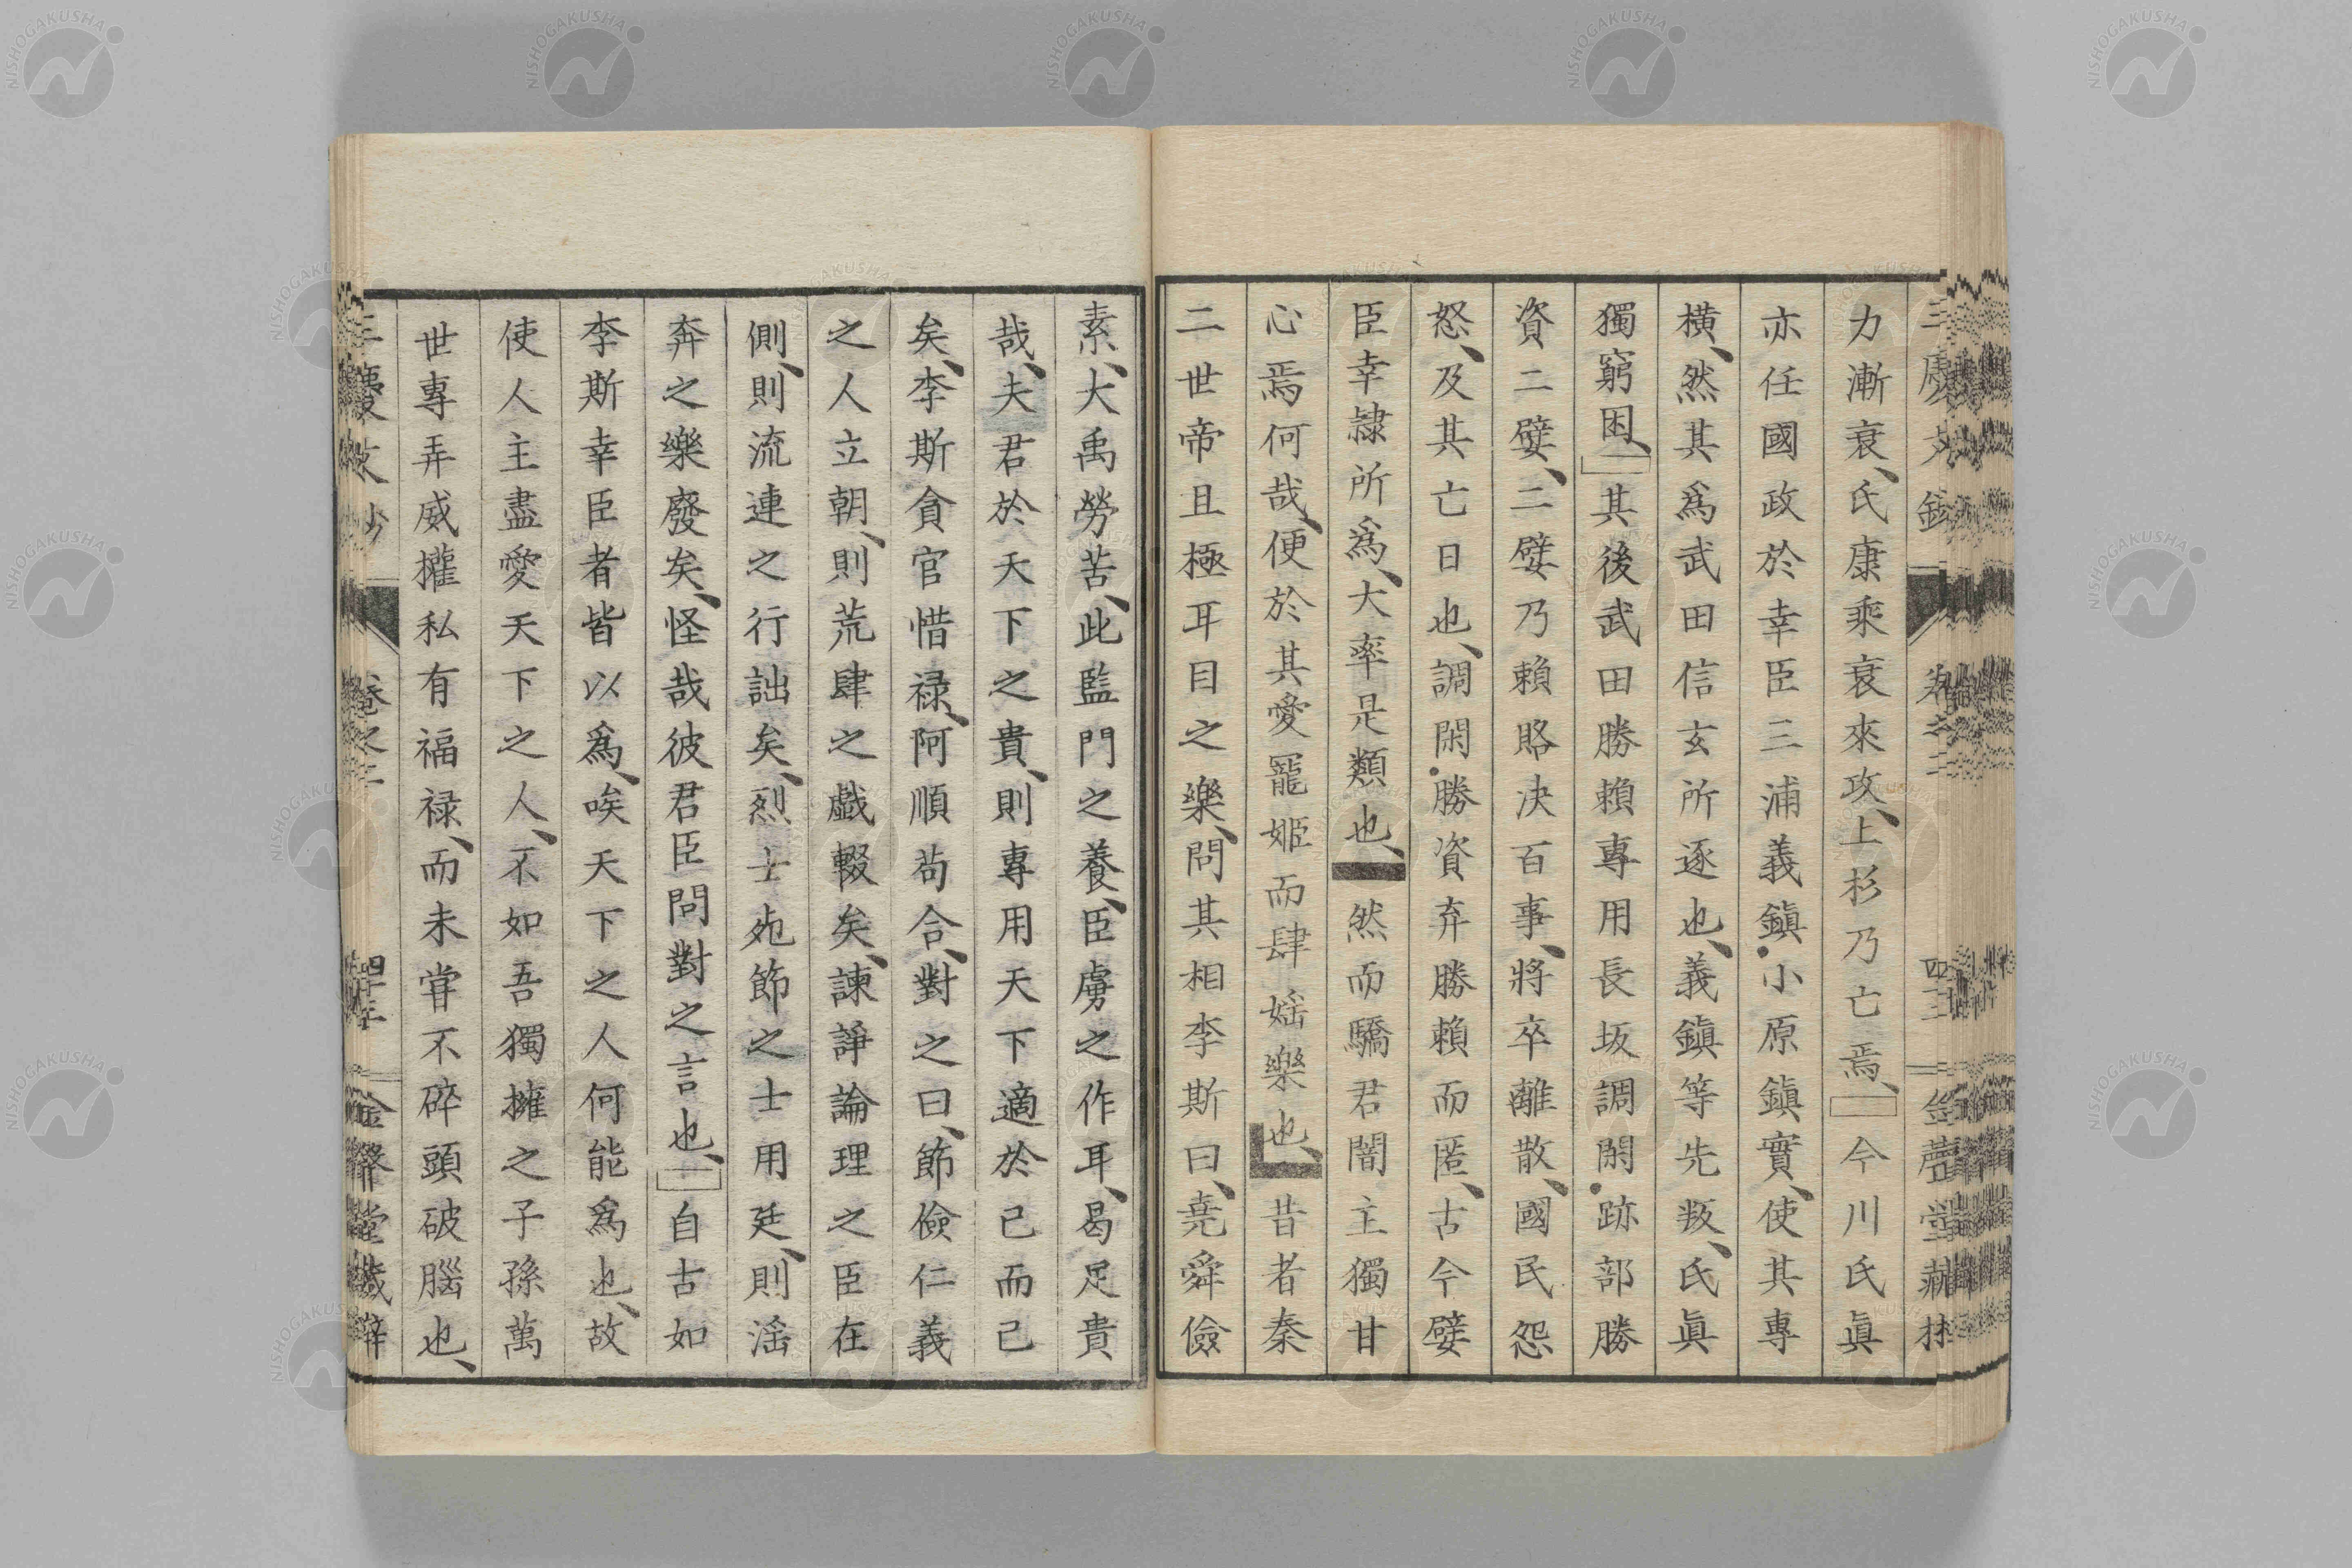 力漸衰、氏康乘衰來攻、上杉乃亡焉、今川氏眞
亦任國政於幸臣三浦義鎭・小原鎭實、使其專
橫、然其爲武田信玄所逐也、義鎭等先叛、氏眞
獨窮困、其後武田勝賴專用長坂調閑・跡部勝
資二嬖、二嬖乃賴賂決百事、將卒離散、國民怨
怒、及其亡日也、調閑・勝資弃勝賴而匿、古今嬖
臣幸隷所爲、大率是類也、然而驕君闇主獨甘
心焉何哉、便於其愛寵姬而肆婬樂也、昔者秦
二世帝且極耳目之樂、問其相李斯曰、堯舜儉
素、大禹勞苦、此監門之養、臣虜之作耳、曷足貴
哉、夫君於天下之貴、則專用天下適於己而已
矣、李斯貪官惜祿、阿順苟合、對之曰、節儉仁義
之人立朝、則荒肆之戲輟矣、諫諍論理之臣在
側、則流連之行詘矣、烈士死節之士用廷、則淫
奔之樂廢矣、怪哉彼君臣問對之言也、自古如
李斯幸臣者皆以爲、唉天下之人何能爲也、故
使人主盡愛天下之人、不如吾獨擁之子孫萬
世專弄威權私有福祿、而未嘗不碎頭破腦也、
NISHOGAKUSHA